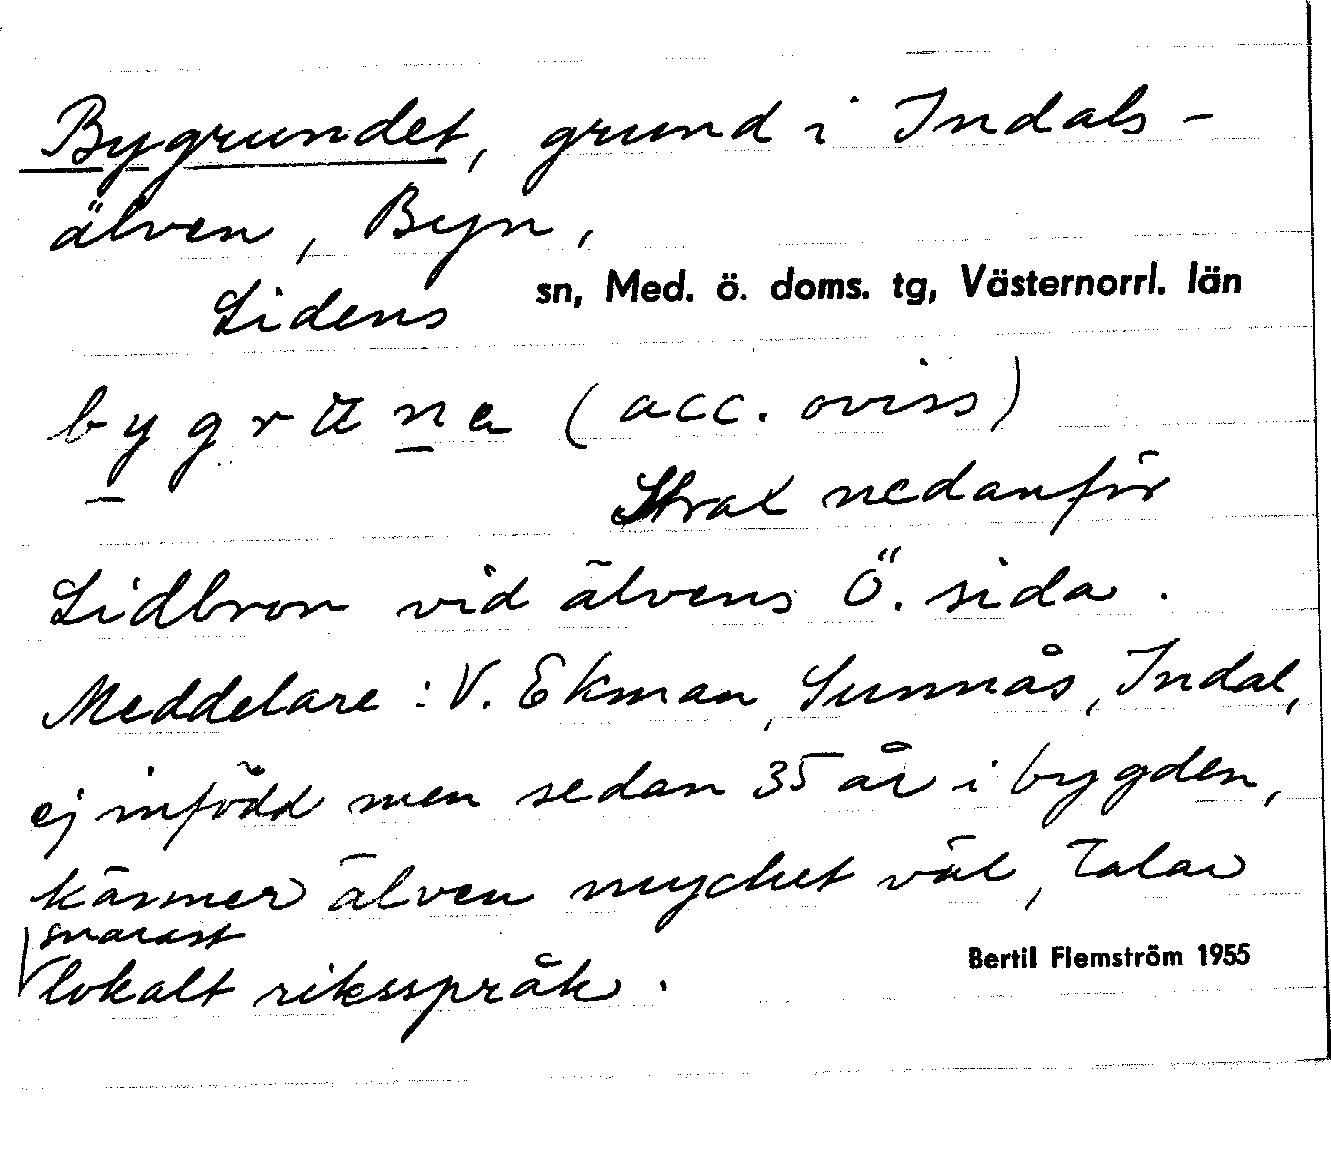 Bygrundet, grund i Indals-
älven, Byn,
Lidens sn, Med. ö. doms. tg, Västernorrl. län
(acc. oviss)
Strax nedanför
Lidbron vid älvens Ö. sida.
Meddelare: V. Ekman, Sunnås, Indal,
ej infödd men sedan 35 år i bygden,
känner älven mycket väl, talar
snarast
lokalt riksspråk.
Bertil Flemström 1955